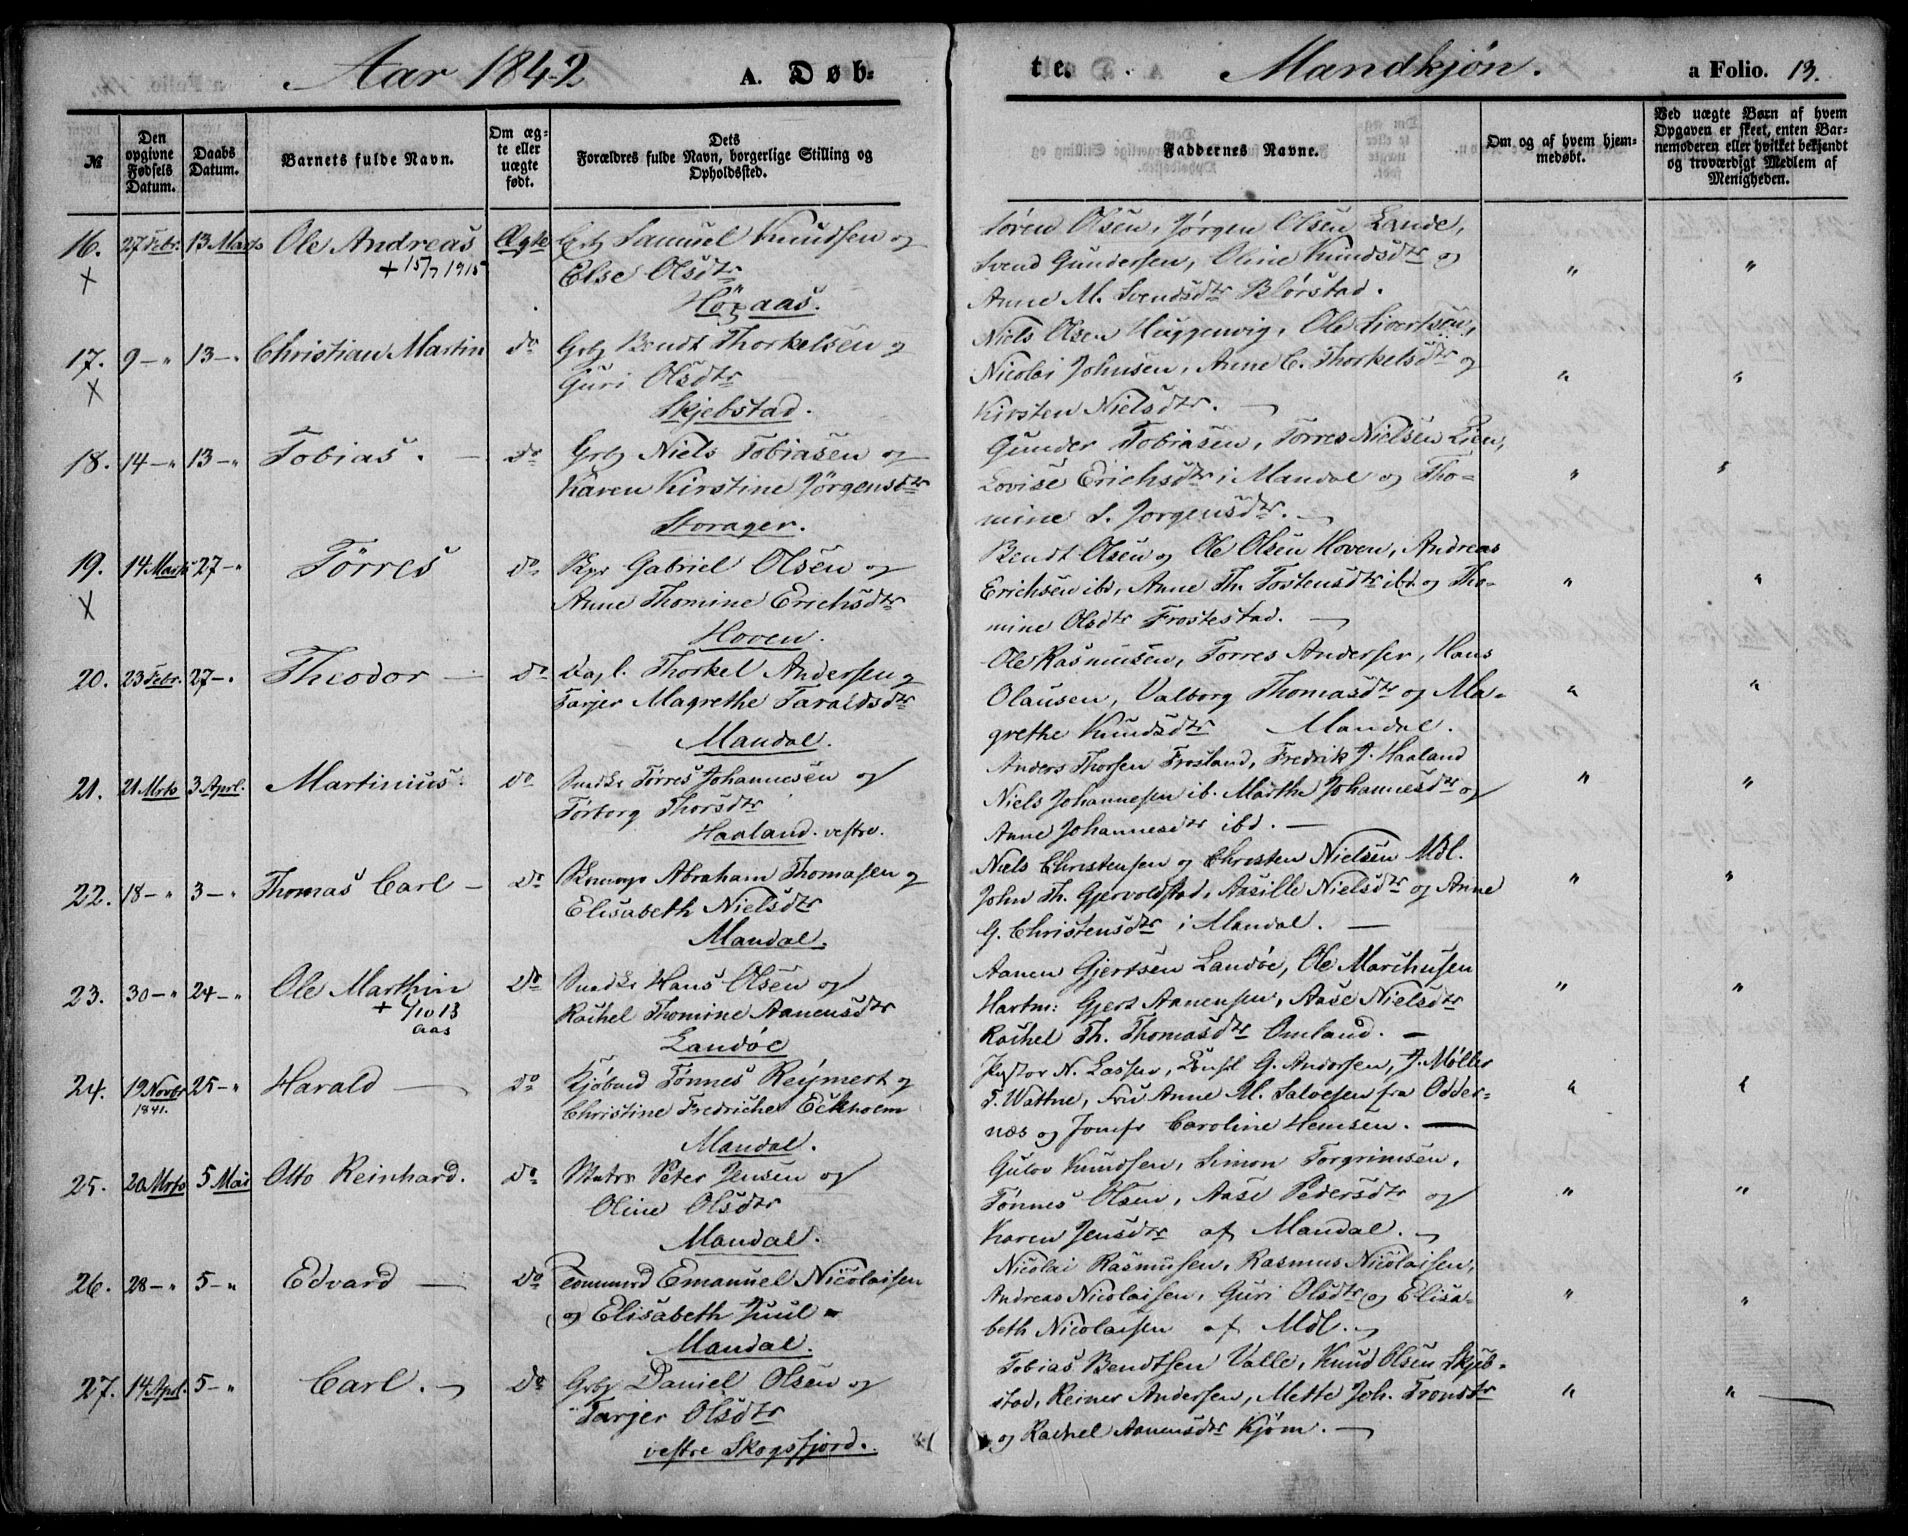 Aar 1842 A. Døb-
te. Mandkjøn. a Folio. 13.
№
Den opgivne Fødsels Datum.
Daabs Datum.
Barnets fulde Navn.
Om ægte eller uægte født.
Dets Forældres fulde Navn, borgerlige Stilling og Opholdssted.
Faddernes Navne.
Om og af hvem hjemmedøbt.
Ved uægte Børn af hvem Opgaven er skeet, enten Barnemoderen eller hvilket bekjendt og troværdigt Medlem af Menigheden.
16. 27 Febr. 13 Marts Ole Andreas Ægte Grbr Samuel Knudsen og
+ 15/7 1915
X
Else Olsdtr
Høyaas.
Søren Olsen, Jørgen Olsen Lande,
Svend Gundersen, Oline Knudsdtr og
Anne M. Svendsdtr Blørstad.
" "
17. 9 — " 13 — " Christian Martin do Grbr Bendt Thorkelsen og
X
Guri Olsdtr
Skjebstad.
Niels Olsen Huggenvig, Ole Sivertsen,
Nicolai Johnsen, Anne C. Thorkelsdtr og
Kirsten Nielsdtr. —
" "
18. 14 — " 13 — " Tobias. — do Grbr Niels Tobiasen og
Karen Kirstine Jørgensdtr
Storager.
Gunder Tobiasen, Tørres Nielsen Lien,
Lovise Erichsdtr i Mandal og Tho-
mine S. Jørgensdtr. —
" "
19. 14 Marts 27 — " Tørres do Gabriel Olsen og
X
Anne Thomine Erichsdtr
Hoven.
Bendt Olsen og Ole Olsen Hoven, Andreas
Erichsen ibd, Anne Th. Tostensdtr ibd. og Tho-
mine Olsdtr Frostestad. —
" "
20. 23 Febr. 27 — " Theodor — do Dagl. Thorkel Andersen og
Tarjer Magrethe Taraldsdtr
Mandal.
Ole Rasmusen, Torres Andersen, Hans
Olausen, Valborg Thomasdtr og Ma-
grethe Knudsdtr Mandal.
" "
21. 21 Mrts 3 Aprl. Martinius. do Snedkr Tørres Johannesen og
Torborg Thorsdtr
Haaland. vestre.
Anders Thorsen Frosland, Fredrik J. Haaland
Niels Johannesen ib. Marthe Johannesdtr og
Anne Johannesdtr ibd. —
" "
22. 18 — " 3 — " Thomas Carl — do Abraham Thomasen og
Elisabeth Nielsdtr
Mandal.
Niels Christensen og Christen Nielsen Mdl.
John Th. Gjervoldstad, Aasille Nielsdtr og Anne
G. Christensdtr i Mandal. —
" "
23. 30 — " 24 — " Ole Marthin do Snedkr Hans Olsen og
+ 6/10 13
aas
Rachel Thomine Aanensdtr
Landøe
Aanen Gjertsen Landøe, Ole Marchusen
Hartm: Gjert Aanensen, Aase Nielsdtr
Rachel Th. Thomasdtr Omland. —
" "
24. 19 Novbr 25 — " Harald — do Kjøbmd Tønnes Reymert og
1841.
Christine Fredriche Eckholm
Mandal.
Pastor N. Lassen, Consl G. Andersen, J. Møller
T. Wattne, Fru Anne M. Salvesen fra Odder-
næs og Jomfr Caroline Hemsen. —
" "
25. 20 Mrts 5 Mai Otto Reinhard. do Matrs Peter Jensen og
Oline Olsdtr
Mandal.
Gutov Knudsen, Simon Torgrimsen,
Tønnes Olsen, Aase Pedersdtr og
Karen Jensdtr af Mandal. —
" "
26. 28 — " 5 — " Edvard — do Emanuel Nicolaisen
og Elisabeth Juul
Mandal.
Nicolai Rasmusen, Rasmus Nicolaisen,
Andreas Nicolaisen, Guri Olsdtr og Elisa-
beth Nicolaisen af Mdl. —
" "
27. 14 Aprl. 5 — " Carl. — do Grbr Daniel Olsen og
Tarjer Olsdtr
vestre Skogsfjord.
Tobias Bendtsen Valle, Knud Olsen Skjeb-
stad, Reiner Andersen, Mette Joh. Trondsdtr
og Rachel Aanensdtr Kjøm. —
" "